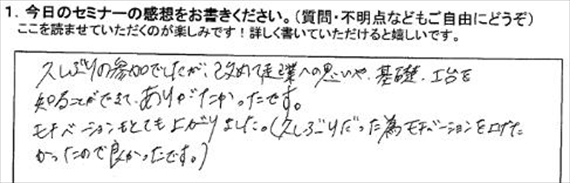 1. 今日のセミナーの感想をお書きください。(質問・不明点などもご自由にどうぞ)
ここを読ませていただくのが楽しみです！詳しく書いていただけると嬉しいです。
久しぶりの参加でしたが、改めて起業への思いや、基礎、土台を
知ることができて、ありがたかったです。
モチベーションもとても上がりました。(久しぶりだった為モチベーションを上げた
かったので良かったです。)